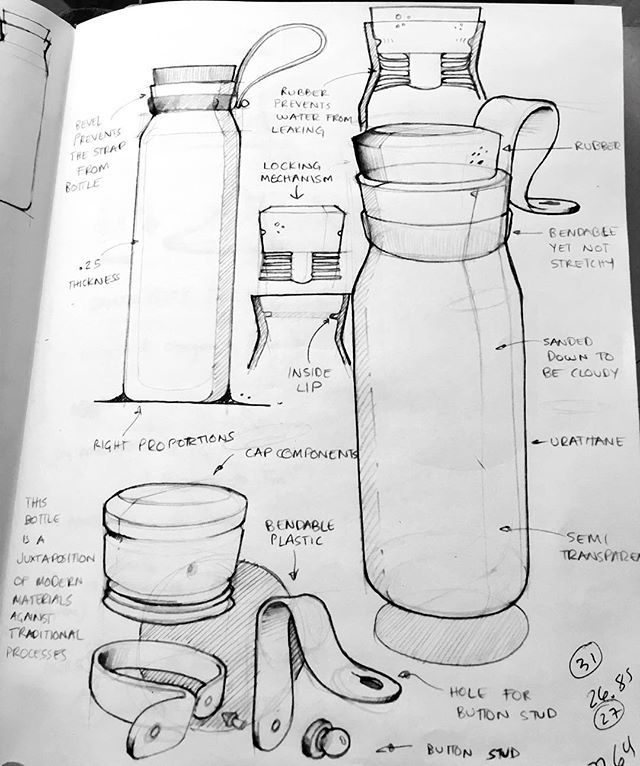 RUBBER
PREVENTS
WATER FROM
LEAKING
BEVEL
PREVENTS
THE STRAP
FROM
BOTTLE
LOCKING
MECHANISM
RUBBER
BENDABLE
YET NOT
STRETCHY
.25
THICKNESS
INSIDE
LIP
SANDED
DOWN TO
BE CLOUDY
RIGHT PROPORTIONS
CAP COMPONENTS
URATHANE
THIS
BOTTLE
IS A
JUXTAPOSITION
OF MODERN
MATERIALS
AGAINST
TRADITIONAL
PROCESSES
BENDABLE
PLASTIC
SEMI
TRANSPARE
HOLE FOR
BUTTON STUD
BUTTON STUD
31
26.85
27
64